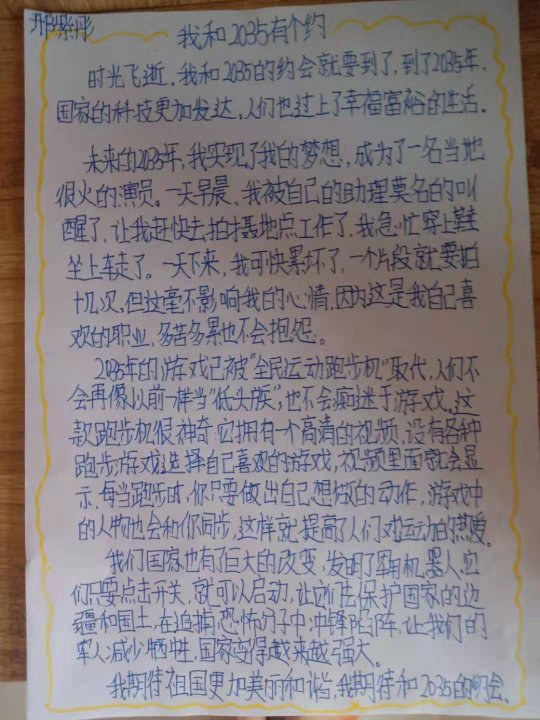 邢紫彤
我和2035有个约
时光飞逝,我和2035的约会就要到了,到了2035年,
国家的科技更加发达,人们也过上了幸福富裕的生活。
未来的2035年,我实现了我的梦想,成为了一名当地
很火的演员。一天早晨,我被自己的助理莫名的叫
醒了,让我赶快去拍摄地点工作了,我急忙穿上鞋
坐上车走了。一天下来,我可快累坏了,一个片段就要拍
十几次,但这毫不影响我的心情,因为这是我自己喜
欢的职业,多苦多累也不会抱怨。
2035年的游戏已被“全民运动跑步机”取代,人们不
会再像以前一样当“低头族”,也不会痴迷于游戏。这
款跑步机很神奇:它拥有一个高清的视频,设有各种
跑步游戏,选择自己喜欢的游戏,视频里面就会显
示,每当跑步时,你只要做出自己想做的动作,游戏中
的人物也会和你同步,这样就提高了人们对运动的热爱。
我们国家也有了巨大的改变,发明了军用机器人,它
们只要点击开关,就可以启动,让它们去保护国家的边
疆和国土,在追捕恐怖份子中,冲锋陷阵,让我们的
军人减少牺牲,国家变得越来越强大。
我期待祖国更加美丽和谐,我期待和2035的约会。